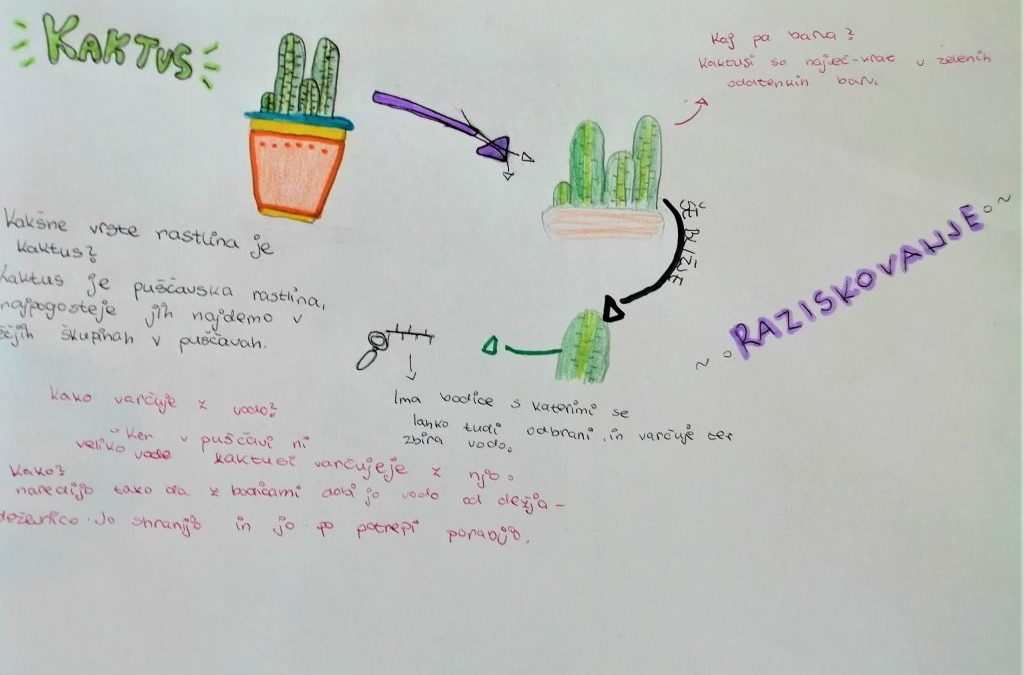 KAKTUS
Kaj pa barva?
Kaktusi so največ-krat v zelenih
oddtenkih barv.
ŠE BLIŽJE
~ ° RAZISKOVANJE ° ~
Kakšne vrste rastlina je
kaktus?
Kaktus je puščavska rastlina,
najpogosteje jih najdemo v
škupinah v puščavah.
Ima bodice s katerimi se
lahko tudi odbrani, in varčuje ter
zbira vodo.
Kako varčuje z vodo?
Ker v puščavi ni
veliko vode kaktusi varčujeje z njo.
Kako?
naredijo tako da z bodicami dobijo vodo od dežja -
deževnico. Jo shranijo in jo po potrepi porabijo.